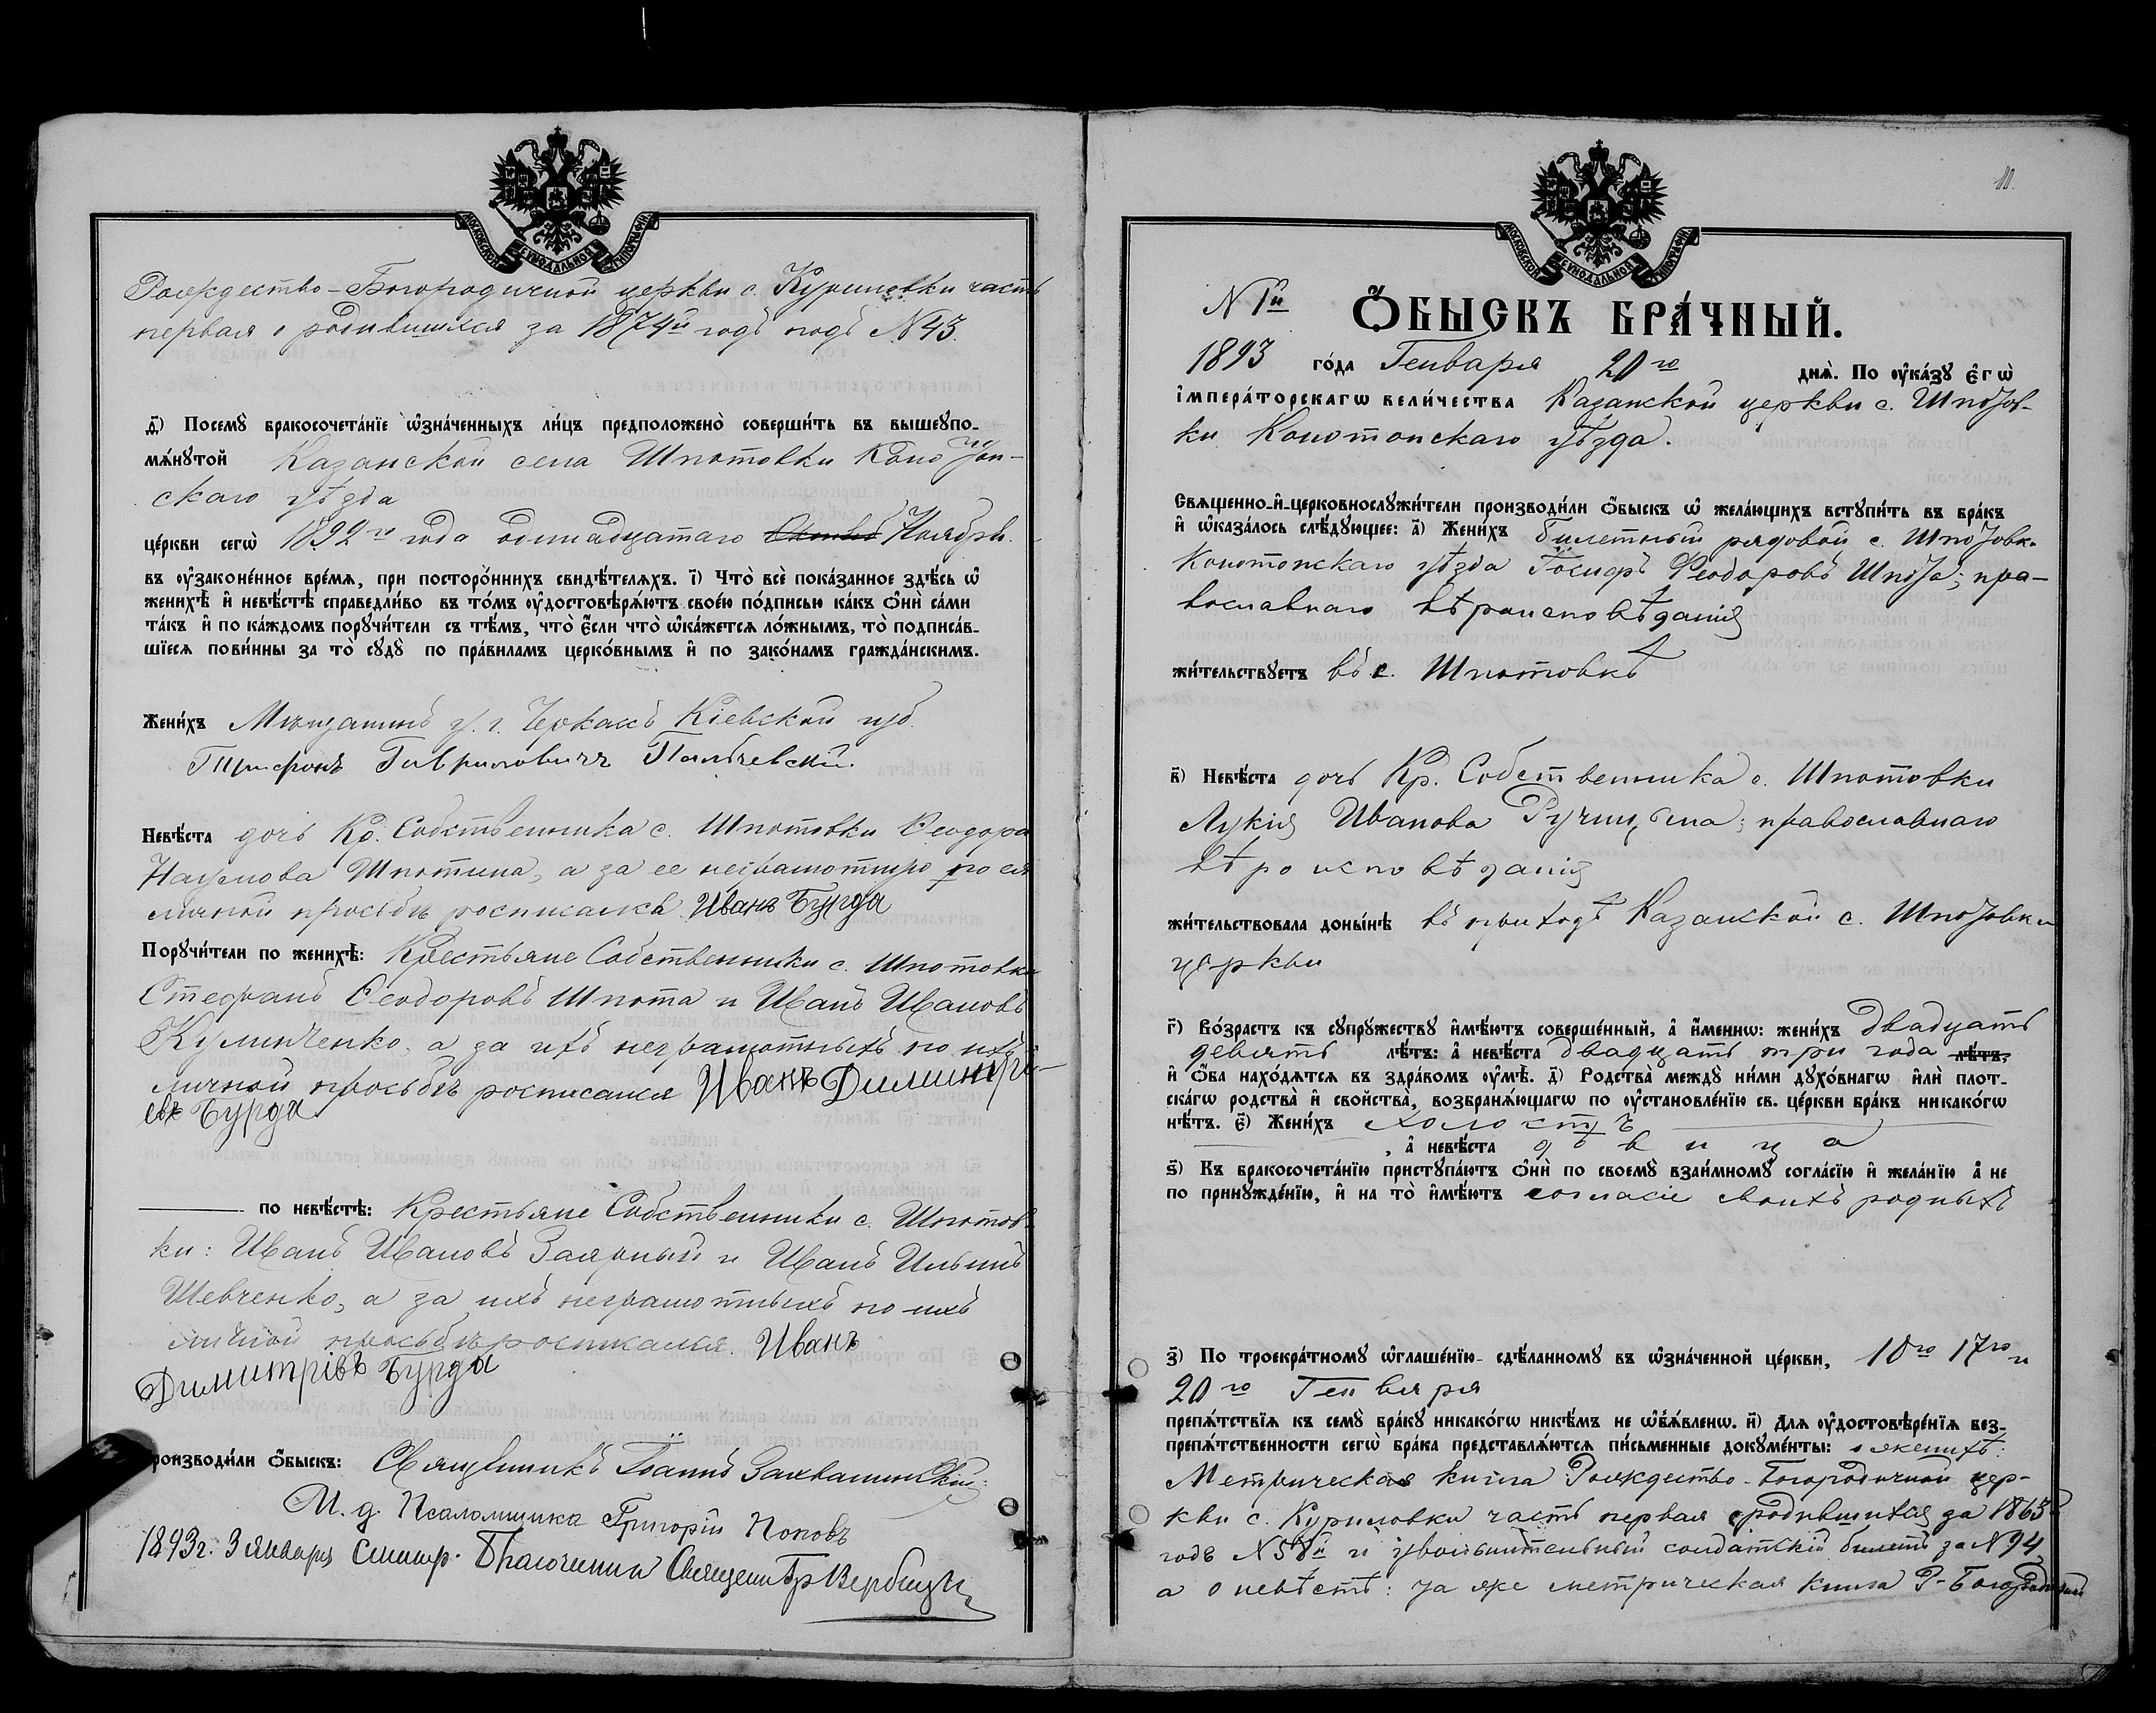 МОСКОВСКОЙ СѴНОДАЛЬНОЙ ТИПОГРАФІИ
Рождество-Богородичной церкви с. Куриловки часть
первая о родившихся за 1874й годъ подъ №43.
д҃) Посемꙋ̀ бракосочета́нїе ѡ҆зна́ченныхъ ли́цъ предположено̀ соверши́ть въ вышеꙋпо-
мѧ́нꙋтой Казанской села Шпотовки Конотоп-
скаго уѣзда
це́ркви сегѡ̀ 1892го года одинадцатаго Ноября.
въ ᲂу҆зако́ненное вре́мѧ, при посторо́ннихъ свидѣ́телѧхъ. і҃) Что̀ всѐ пока́занное здѣ́сь ѡ҆
женихѣ̀ и҆ невѣ́стѣ справедли́во въ то́мъ ᲂу҆достовѣрѧ́ютъ своє́ю по́дписью ка́къ ѻ҆нѝ са́ми
та́къ и҆ по ка́ждомъ порꙋчи́тели съ тѣ́мъ, что̀ є҆́сли что̀ ѡ҆ка́жетсѧ ло́жнымъ, то̀ подписа́в-
шїесѧ пови́нны за то̀ сꙋдꙋ̀ по пра́виламъ церко́внымъ и҆ по зако́намъ гражда́нскимъ.
Жени́хъ Мѣщанинъ г. Черкасъ Кіевской губ.
Трифонъ Гавриловичъ
Невѣ́ста дочь Кр. Собственника с. Шпотовки Ѳеодора
Наумова Шпотина, а за ее неграмотную по ея
личной просьбѣ росписался Иванъ Бурда
Порꙋчи́тели по женихѣ̀: Крестьяне Собственники с. Шпотовки
Стефанъ Ѳеодоровъ Шпота и Иванъ Ивановъ
Кулинченко, а за ихъ неграмотныхъ по ихъ
личной просьбѣ росписался Иванъ Димитрі-
евъ Бурда
по невѣ́стѣ: Крестьяне Собственники с. Шпотов-
ки: Иванъ Ивановъ Заярный и Иванъ Ильинъ
Шевченко, а за ихъ неграмотныхъ по ихъ
личной просьбѣ росписался. Иванъ
Димитрівъ Бурда
роизводи́ли ѻ҆́быскъ: Священникъ Іоаннъ Захвалинскій
И. д. Псаломщика Григорій Поповъ
1893г. 3 января Благочинный Священ. Гр Вербицкій
10.
МОСКОВСКОЙ СѴНОДАЛЬНОЙ ТИПОГРАФІИ
N 1й ѺБЫСКЪ БРА́ЧНЫЙ.
1893 го́да Генваря 20го днѧ̀. По ᲂу҆ка́зꙋ є҆гѡ̀
і҆мпера́торскагѡ вели́чества Казанской церкви с. Шпотов-
ки Конотопскаго уѣзда.
Свѧщенно-и҆-церковнослꙋжи́тели производи́ли ѻ҆́быскъ ѡ҆ жела́ющихъ встꙋпи́ть въ бра́къ
и҆ ѡ҆каза́лось слѣ́дꙋющее: а҃) Жени́хъ билетный рядовой с. Шпотовк.
Конотопскаго уѣзда Іосифъ Ѳеодоровъ Шпота; пра-
вославнаго вѣроисповѣданія
жи́тельствꙋетъ въ с. Шпотовкѣ
в҃) Невѣ́ста дочь Кр. Собственника с. Шпотовки
Лукія Иванова; православнаго
вѣроисповѣданія
жи́тельствовала доны́нѣ въ приходѣ Казанской с. Шпотовки
церкви
г҃) Во́зрастъ къ сꙋпрꙋ́жествꙋ и҆мѣ́ютъ соверше́нный, а҆ и҆́меннѡ: жени́хъ двадцать
девять лѣ́тъ: а҆ невѣ́ста двадцать три года лѣ́тъ,
и҆ ѻ҆́ба нахо́дѧтсѧ въ здра́вомъ ᲂу҆мѣ̀. д҃) Родства̀ междꙋ̀ ни́ми дꙋхо́внагѡ и҆лѝ плот-
ска́гѡ родства̀ и҆ свойства̀, возбранѧ́ющагѡ по ᲂу҆становле́нїю св. це́ркви бра́къ никако́гѡ
нѣ́тъ. є҃) Жени́хъ холостъ
, а҆ невѣ́ста дѣвица
ѕ҃) Къ бракосочета́нїю пристꙋпа́ютъ ѻ҆нѝ по своемꙋ̀ взаи́мномꙋ согла́сїю и҆ жела́нїю а҆ не
по принꙋжде́нїю, и҆ на то̀ и҆мѣ́ютъ согласіе своихъ родныхъ
з҃) По троекра́тномꙋ ѡ҆глаше́нїю- сдѣ́ланномꙋ въ ѡ҆зна́ченной це́ркви, 10го 17го и
20го Генваря
препѧ́тствїѧ къ семꙋ̀ бра́кꙋ никако́гѡ никѣ́мъ не ѡ҆б̾ѧ́вленѡ. и҃) Длѧ ᲂу҆достовѣре́нїѧ без-
препѧ́тственности сегѡ̀ бра́ка представлѧ́ютсѧ пи́сьменные докꙋме́нты: о женихѣ:
Метрическая книга Рождество-Богородичной цер-
кви с. Куриловки часть первая о родившихся за 1863й
годъ №58й и увольнительный солдатскій билетъ за №94,
а о невѣстѣ: та же метрическая книга Р-Богородичной